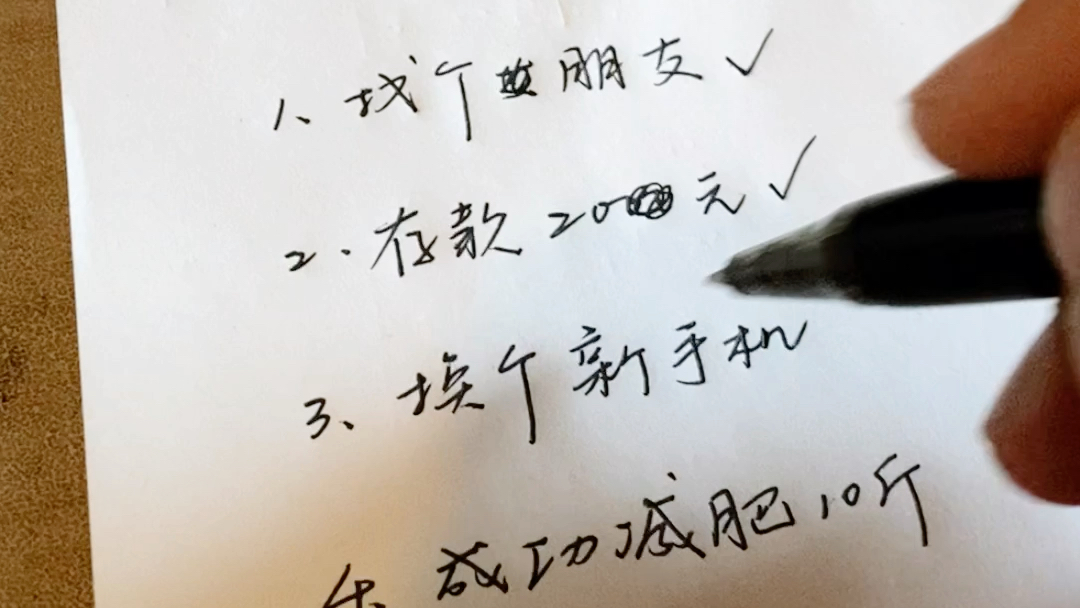 1、找个朋友✓
2.存款200元✓
3、换个新手机
4、成功减肥10斤